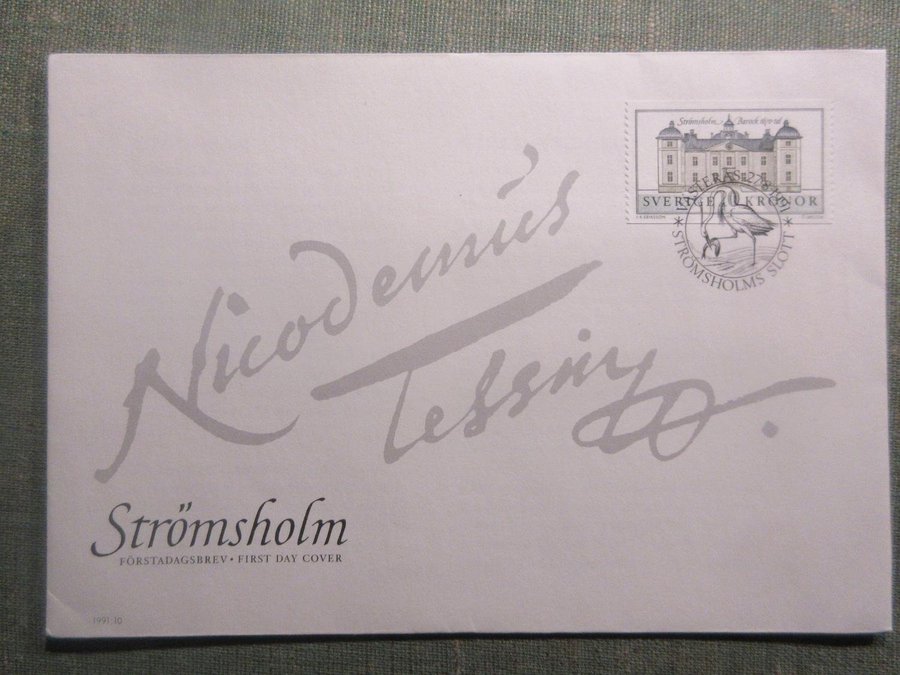 Strömsholm Barock 1670-tal
SVERIGE KRONOR
VÄSTERÅS 27 8 1991
* STRÖMSHOLMS SLOTT *
Nicodemús
Tessin
Strömsholm
FÖRSTADAGSBREV • FIRST DAY COVER
1991:10